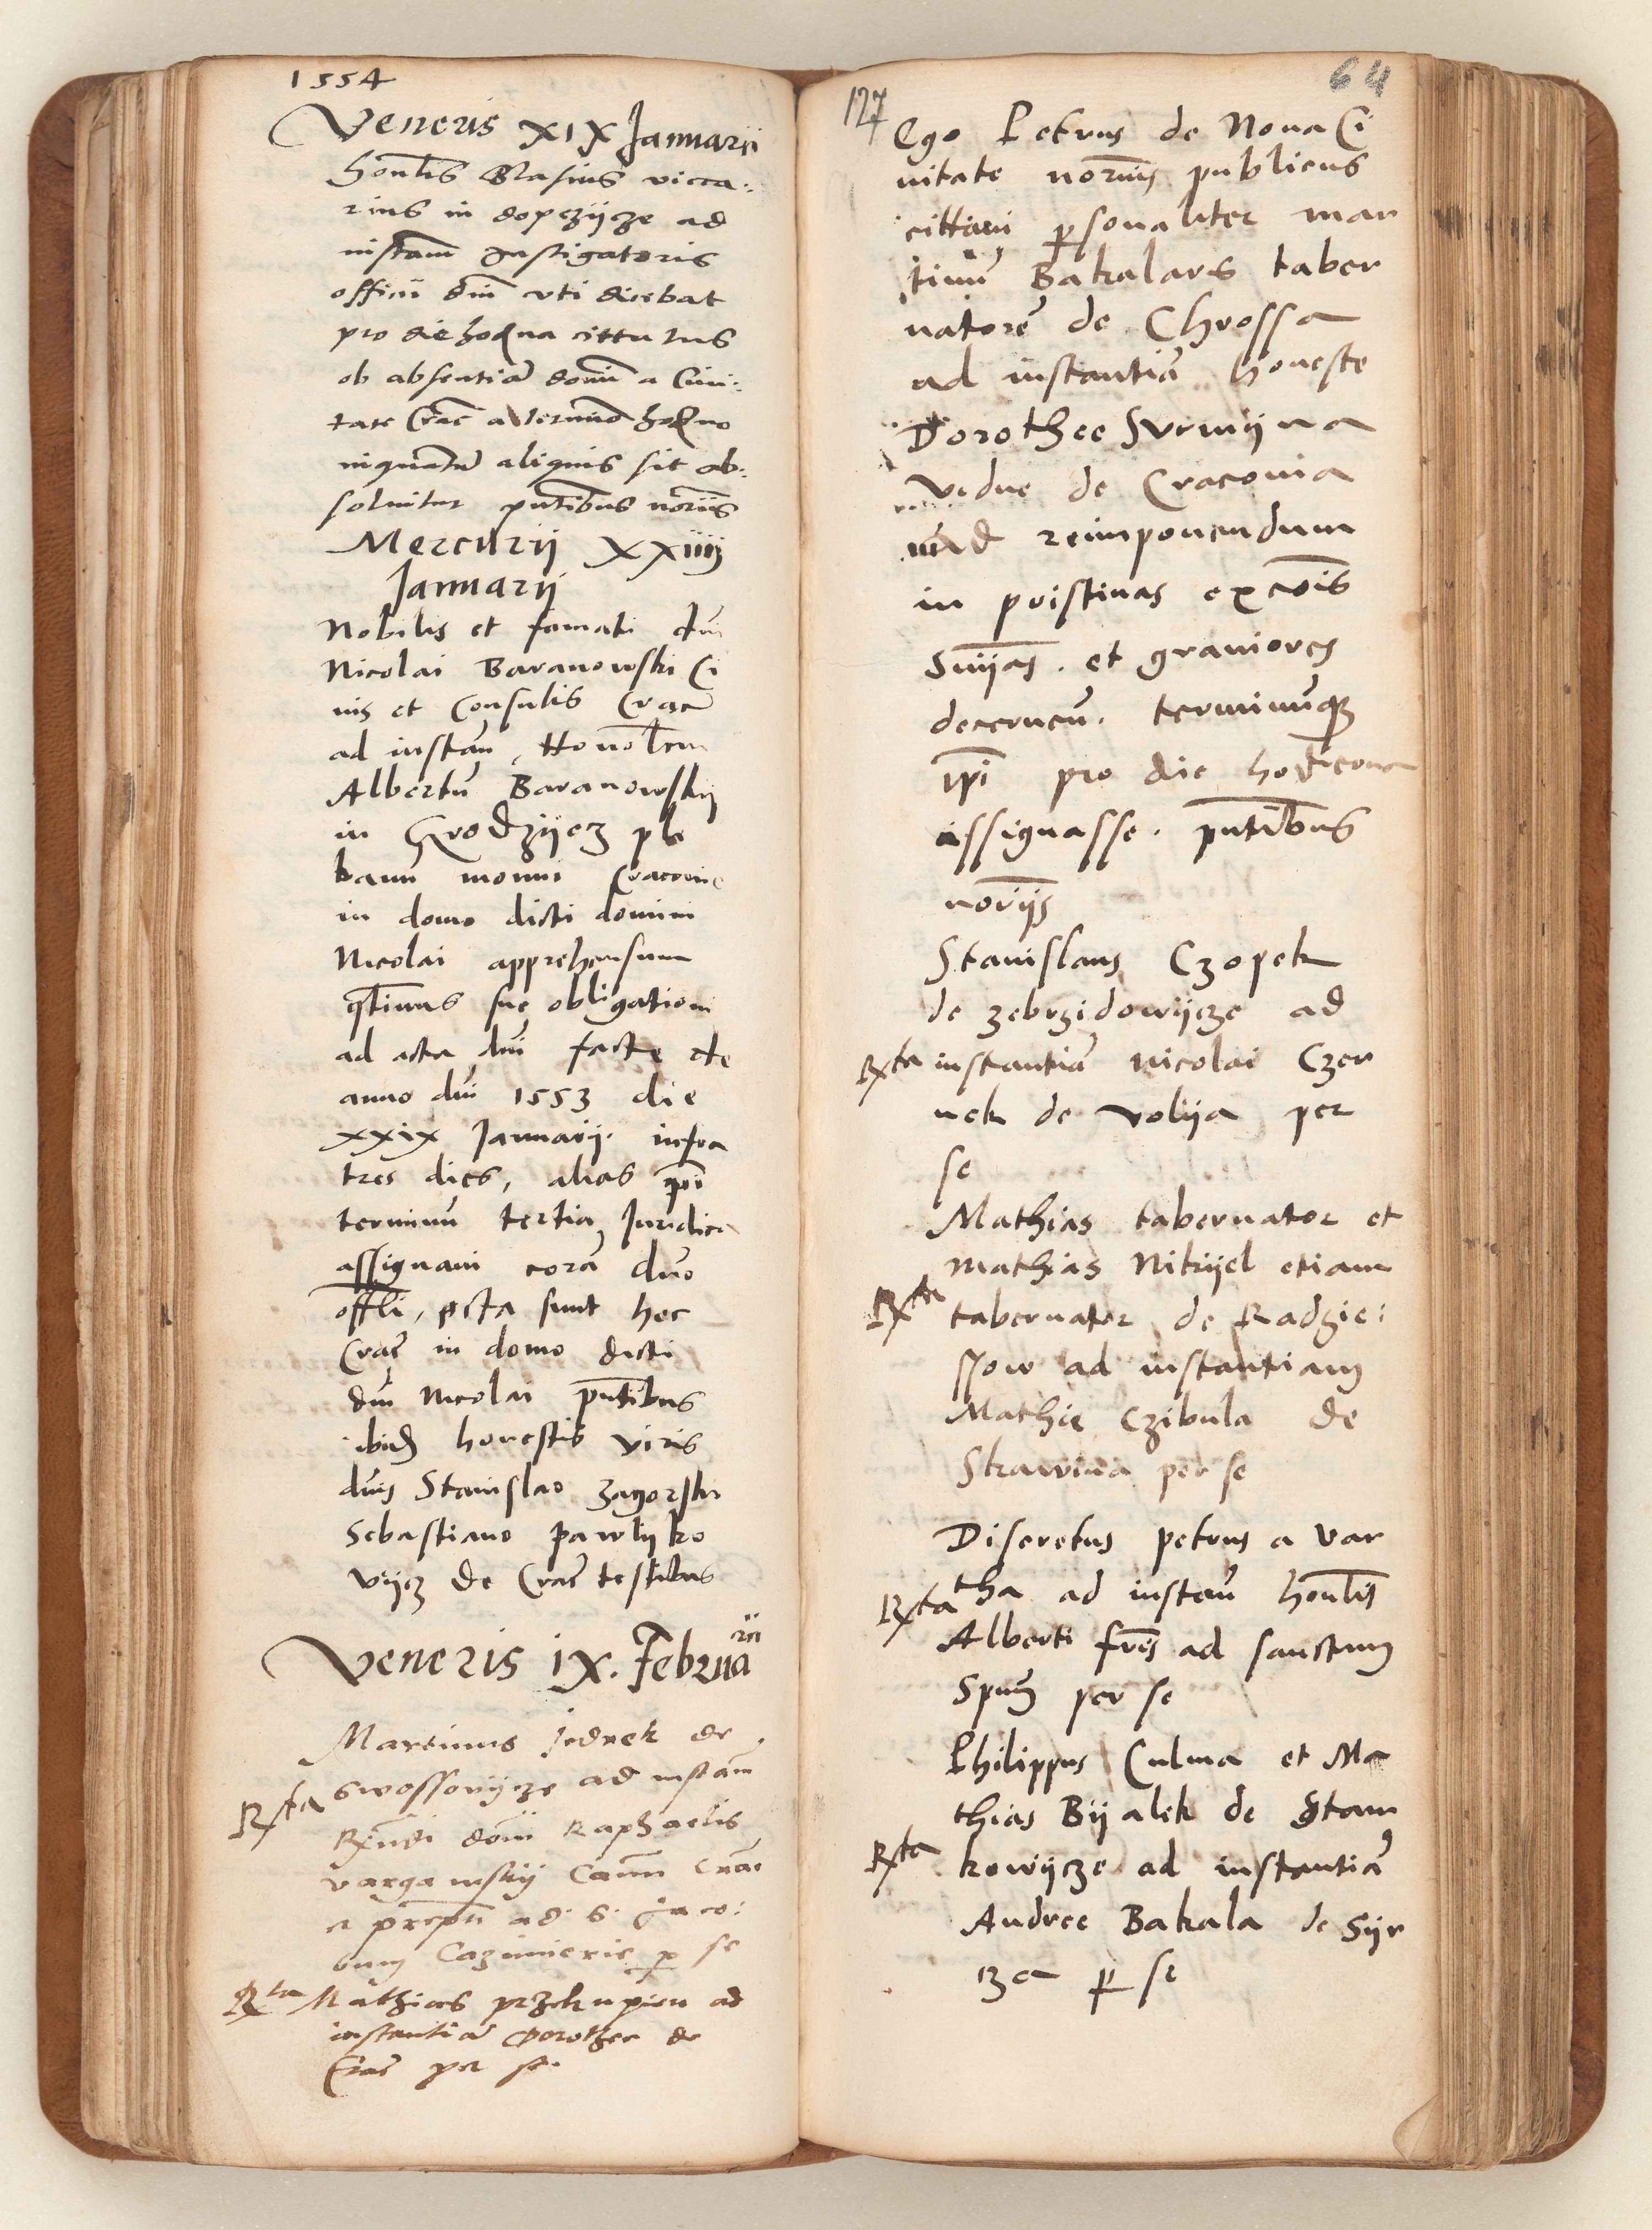 1554
Veneris XIX Januarij
honlis Blasius vicca:
rius in dopczijcze ad
instam Instigatoris
officii dni vti dicebat
pro die hoḋna cittatus
ob absentiam domini a Ciui:
tate Crac a termino hoḋno
inquantum aliquis sit ab:
soluitur pntibus norijs
Mercurij XXiiij
Januarij
Nobilis et famati dni
Nicolai Baranowski Ci
uis et Consulis Crac
ad instam Honolem
Albertum Baranowskij
in Grodzijecz ple
banum monui Cracovie
in domo dicti domini
Nicolai apprehensum
qtinus sue obligationi
ad acta dni facte de
anno dni 1553 die
xxix Januarij infra
tres dies, alias ipsi
terminum tertia Juridica
assignaui coram dno
offli, acta sunt hec
Crac in domo dicti
dni Nicolai pntibus
ibidem honestis viris
dnis Stanislao Zagorski
Sebastiano Pawlijko
vijcz de Crac testibus
Veneris ix. Februarii
Martinus Jedrek de
Swossovijcze ad instam
Rxta
Rxndi domi Raphaelis
vargawskij Cann Crac
et prepti ad S. Jaco:
bum Cazimierie p se
Rxta Mathias przekupien ad
instantiam Dorothee de
Crac per se.
64
127
Ego Petrus de Noua Ci
uitate norius publicus
cittaui personaliter mar
tinum Bakalarz taber
natorem de Chrossa
ad instantiam honeste
Dorothee Surmijna
vidue de Cracouia
ad reimponendum
in pristinas excois
snijas. et grauiores
decernen. terminumque
ipsi pro die hodierna
assignasse. pntibus
norijs
Stanislaus Czopek
de zebrzidowijcze ad
Rxta instantiam Nicolai Czer
nek de Volija per
se
Mathias tabernator et
mathias Nikijel etiam
Rxta tabernator de Radzie:
ssow ad instantiam
Mathie Czibula de
Skawina per se
Discretus petrus a Var
tha ad instam honlis
Rxta
Alberti fris ad sanctum
Spum per se
Philippus Culma et Ma
thias Bijalek de Stan
Rxta kowijcze ad instantiam
Andree Bakala de Sijr
cza p se